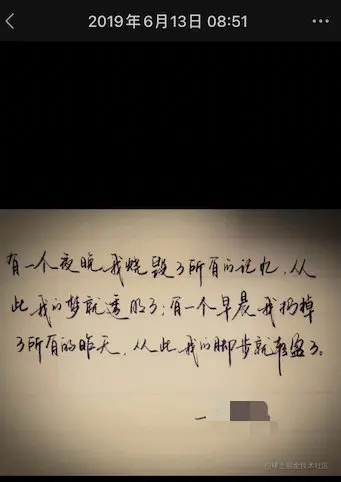 2019年6月13日 08:51
有一个夜晚我烧毁了所有的记忆，从
此我的梦就透明了；有一个早晨我扔掉
了所有的昨天，从此我的脚步就轻盈了。
@稀土掘金技术社区